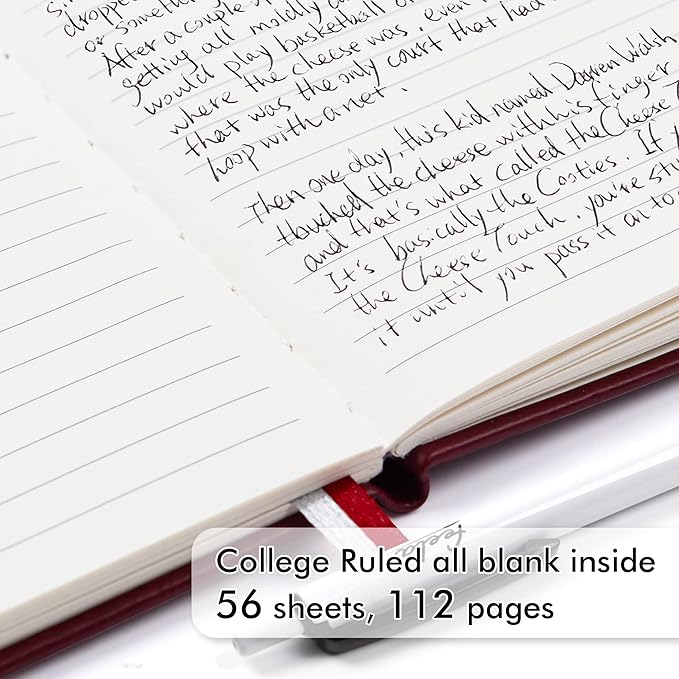 dropped
or something
After a couple
getting all moldly
would play basketball
where the cheese was, even
that was the only court that had a
hoop with a net.
Then one day, this kid named Darren Walsh
touched the cheese with his finger
and that's what called the Cheese
It's basically the Cooties. If
the Cheese Touch, you're
it until you pass it on to
feela
College Ruled all blank inside
56 sheets, 112 pages